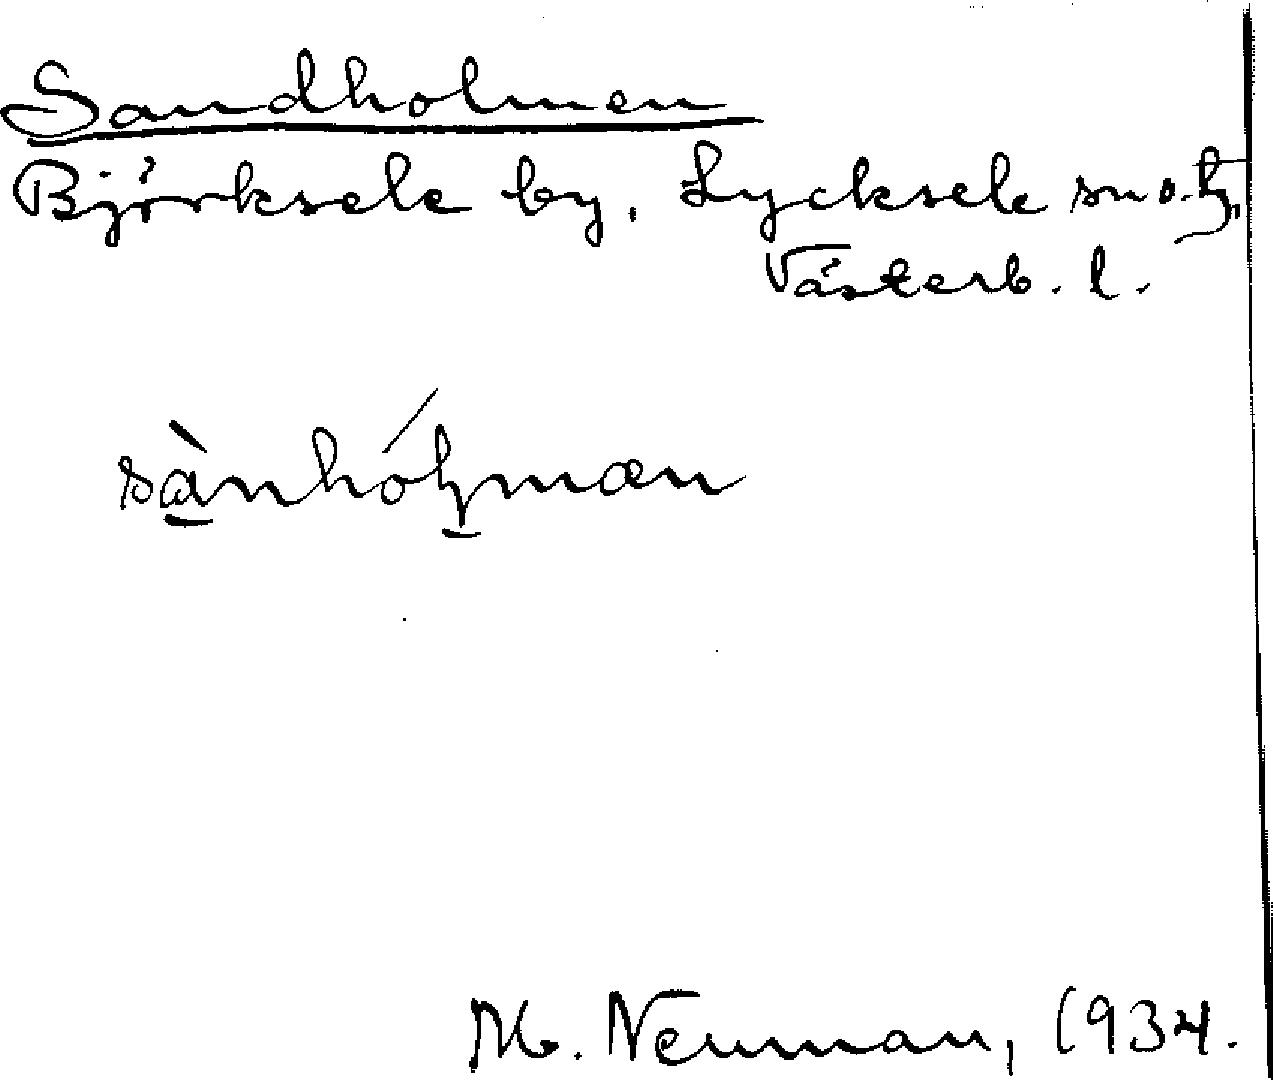 Sandholmen
Björksele by, Lycksele sn o. tg,
Västerb. l.
M. Neuman, 1934.